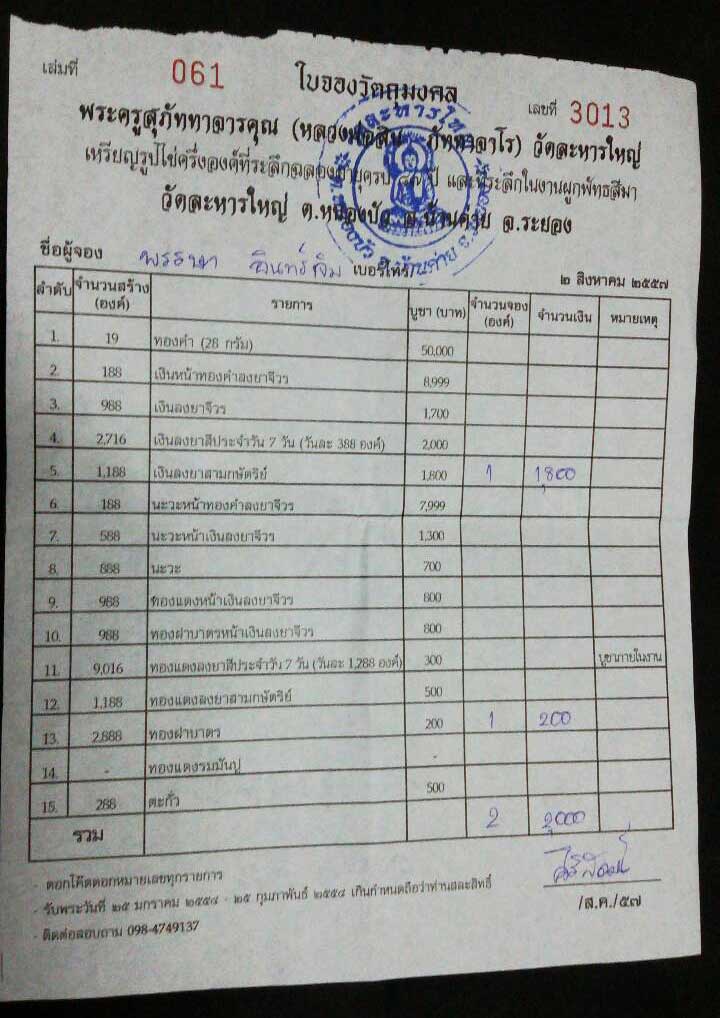 เล่มที่ 061 ใบจองวัตถุมงคล เลขที่ 3013
พระครูสุภัททาจารคุณ (หลวงพ่อสิน ภัททาจาโร) วัดละหารใหญ่
เหรียญรูปไข่ครึ่งองค์ที่ระลึกฉลองอายุครบ ปี และที่ระลึกในงานผูกพัทธสีมา
วัดละหารใหญ่ ต.หนองบัว อ.บ้านค่าย จ.ระยอง
ชื่อผู้จอง พรรษา อินทร์ฉิม เบอร์โทร.
๒ สิงหาคม ๒๕๕๗
ลำดับ จำนวนสร้าง (องค์) รายการ บูชา (บาท) จำนวนจอง (องค์) จำนวนเงิน หมายเหตุ
1. 19 ทองคำ (28 กรัม) 50,000
2. 188 เงินหน้าทองคำลงยาจีวร 8,999
3. 988 เงินลงยาจีวร 1,700
4. 2,716 เงินลงยาสีประจำวัน 7 วัน (วันละ 388 องค์) 2,000
5. 1,188 เงินลงยาสามกษัตริย์ 1,800 1 1,800
6. 188 นะวะหน้าทองคำลงยาจีวร 7,999
7. 588 นะวะหน้าเงินลงยาจีวร 1,300
8. 888 นะวะ 700
9. 988 ทองแดงหน้าเงินลงยาจีวร 800
10. 988 ทองฝาบาตรหน้าเงินลงยาจีวร 800
11. 9,016 ทองแดงลงยาสีประจำวัน 7 วัน (วันละ 1,288 องค์) 300 บูชาภายในงาน
12. 1,188 ทองแดงลงยาสามกษัตริย์ 500
13. 2,888 ทองฝาบาตร 200 1 200
14. - ทองแดงรมมันปู -
15. 288 ตะกั่ว 500
รวม 2 2,000
- ตอกโค๊ตตอกหมายเลขทุกรายการ
- รับพระวันที่ ๒๕ มกราคม ๒๕๕๘ - ๒๕ กุมภาพันธ์ ๒๕๕๘ เกินกำหนดถือว่าท่านสละสิทธิ์
- ติดต่อสอบถาม 098-4749137
/ส.ค./๕๗